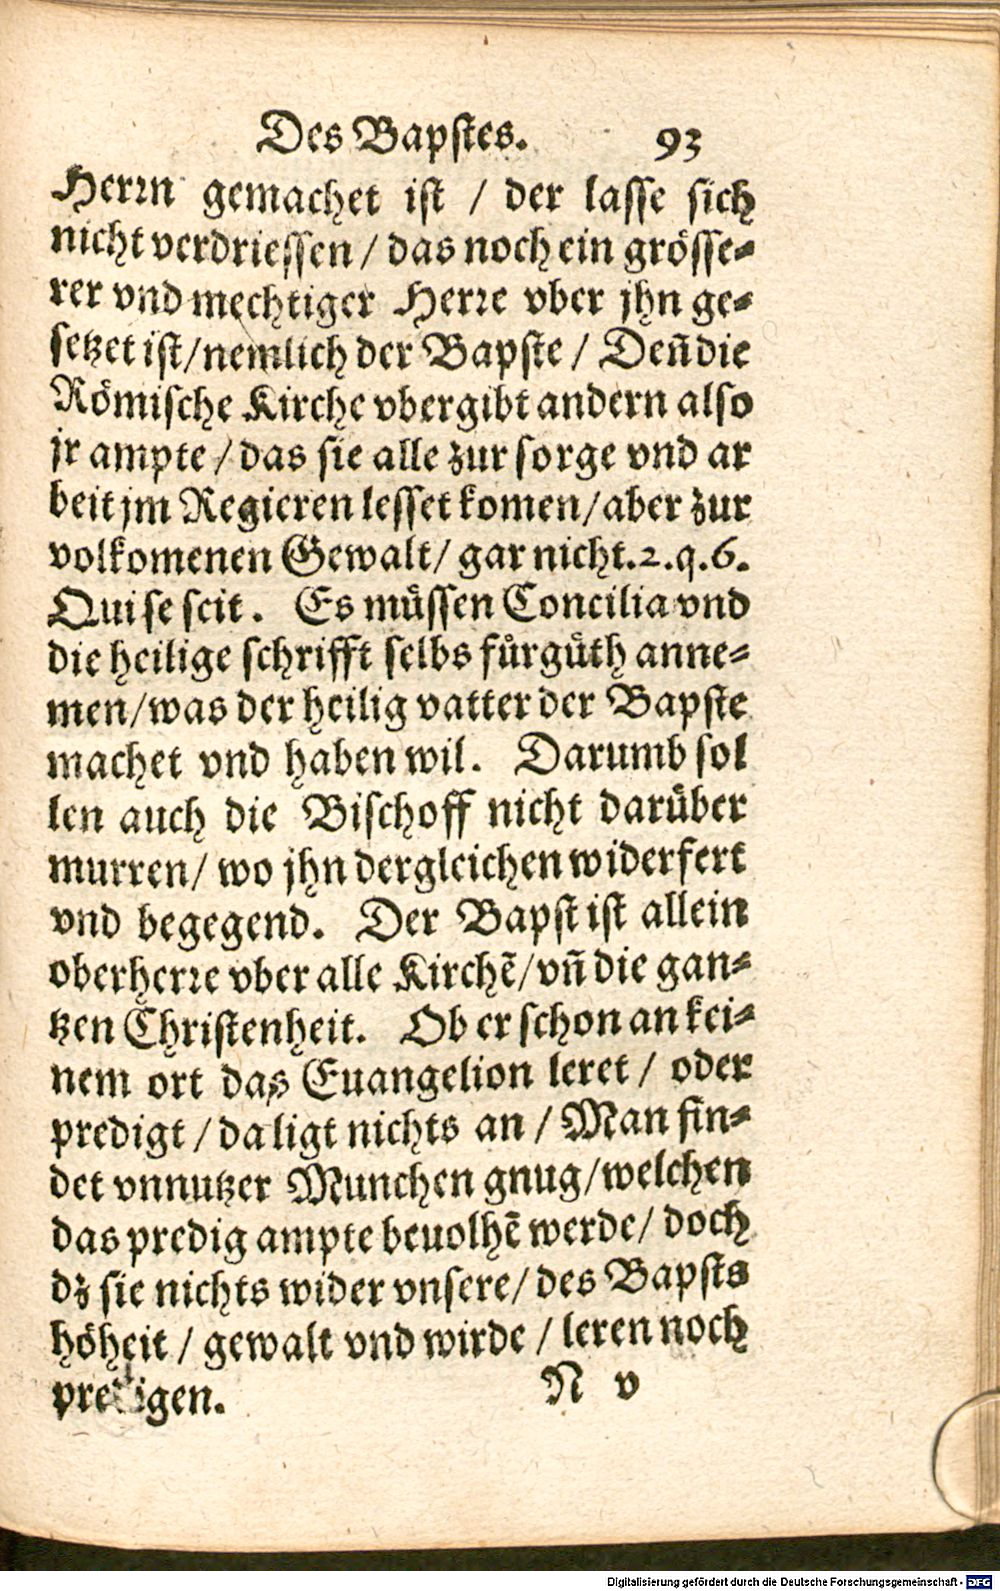 Des Bapstes. 93
Herrn gemachet ist / der lasse sich
nicht verdriessen / das noch ein grösse-
rer vnd mechtiger Herre vber jhn ge-
setzet ist / nemlich der Bapste / Deñ die
Römische Kirche vbergibt andern also
jr ampte / das sie alle zur sorge vnd ar
beit jm Regieren lesset komen / aber zur
volkomenen Gewalt / gar nicht. 2. q. 6.
Qui se scit. Es müssen Concilia vnd
die heilige schrifft selbs fürgüth anne-
men / was der heilig vatter der Bapste
machet vnd haben wil. Darumb sol
len auch die Bischoff nicht darüber
murren / wo jhn dergleichen widerfert
vnd begegend. Der Bapst ist allein
oberherre vber alle Kirchẽ / vñ die gan-
tzen Christenheit. Ob er schon an kei-
nem ort das Euangelion leret / oder
predigt / da ligt nichts an / Man fin-
det vnnutzer Munchen gnug / welchen
das predig ampte beuolhẽ werde / doch
dz sie nichts wider vnsere / des Bapsts
höheit / gewalt vnd wirde / leren noch
predigen. N v
Digitalisierung gefördert durch die Deutsche Forschungsgemeinschaft - DFG